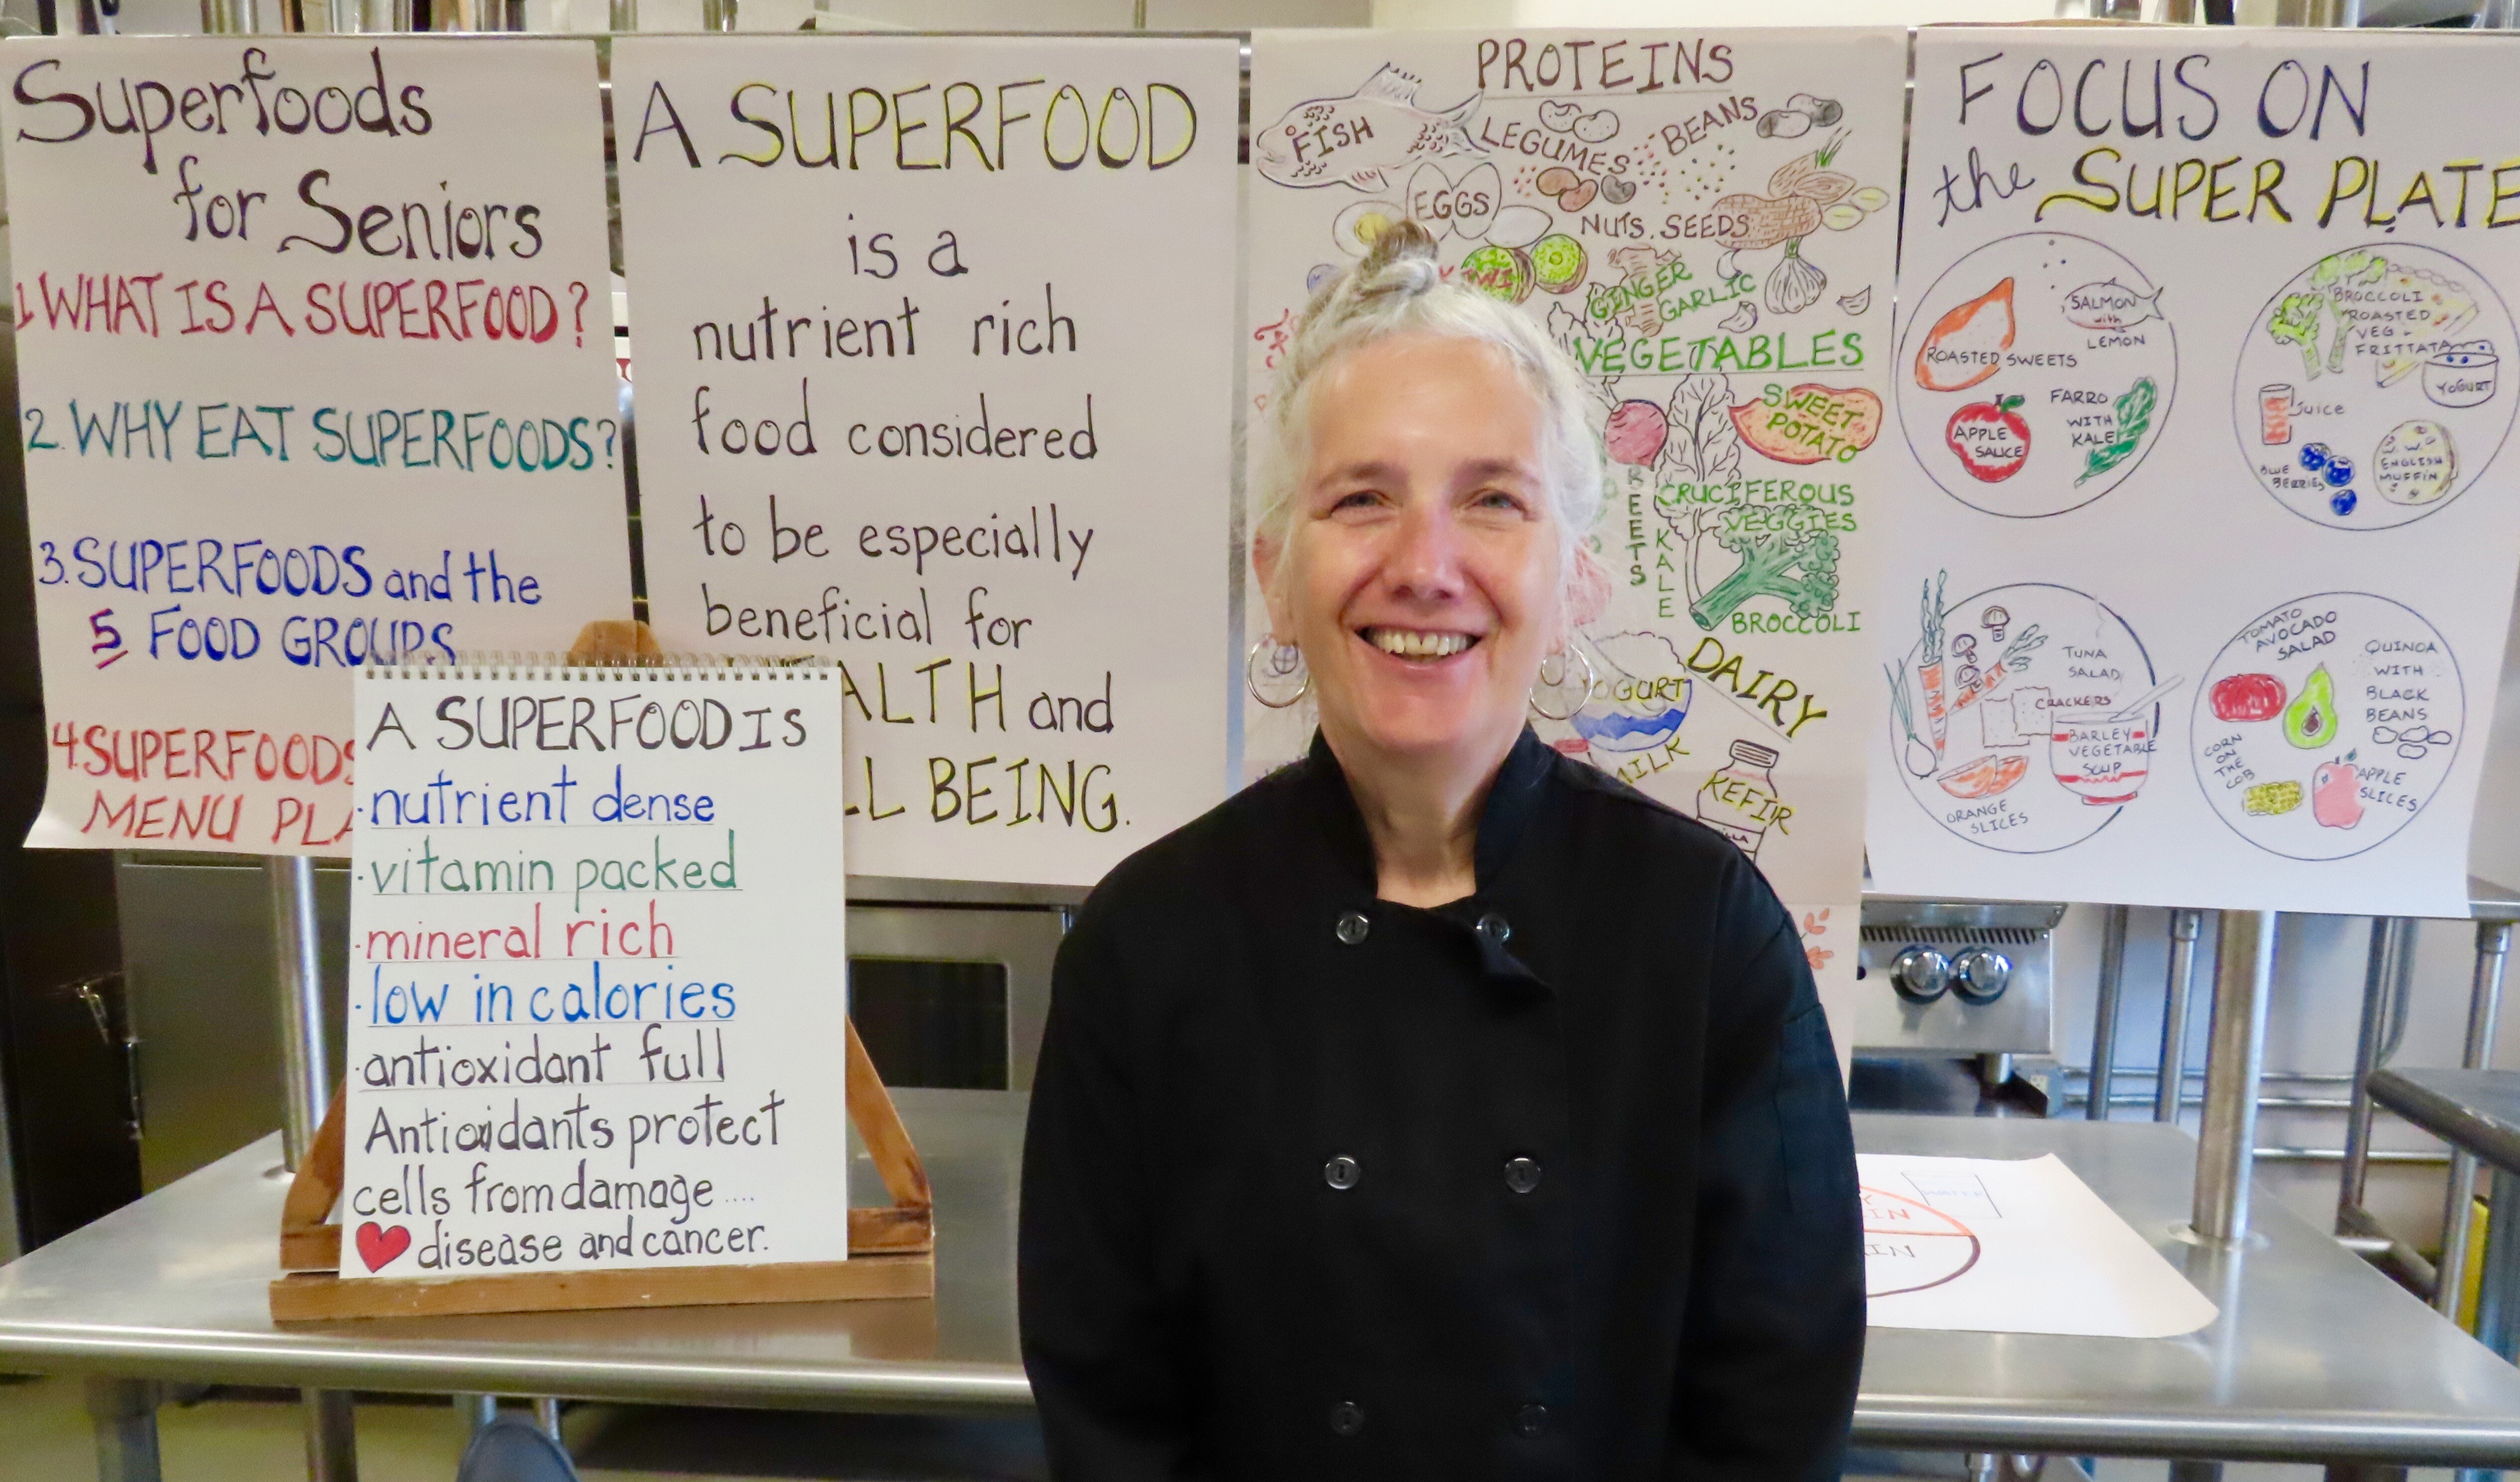 Superfoods
for Seniors
1 WHAT IS A SUPERFOOD?
2. WHY EAT SUPERFOODS?
3. SUPERFOODS and the
5 FOOD GROUPS
4. SUPERFOODS
MENU
A SUPERFOOD
is a
nutrient rich
food considered
to be especially
beneficial for
ALTH and
LL BEING.
A SUPERFOOD IS
· nutrient dense
· vitamin packed
· mineral rich
· low in calories
· antioxidant full
Antioxidants protect
cells from damage ....
disease and cancer.
PROTEINS
FISH
LEGUMES
BEANS
EGGS
NUTS. SEEDS
GINGER
GARLIC
VEGETABLES
SWEET
POTATO
BEETS
KALE
CRUCIFEROUS
VEGGIES
BROCCOLI
DAIRY
YOGURT
MILK
KEFIR
FOCUS ON
the SUPER PLATE
ROASTED SWEETS
SALMON
with
LEMON
APPLE
SAUCE
FARRO
WITH
KALE
BROCCOLI
ROASTED
VEG +
FRITTATA
YOGURT
Juice
BLUE
BERRIES
ENGLISH
MUFFIN
TUNA
SALAD
CRACKERS
BARLEY
VEGETABLE
SOUP
ORANGE
SLICES
TOMATO
AVOCADO
SALAD
QUINOA
WITH
BLACK
BEANS
CORN
ON
THE
COB
APPLE
SLICES